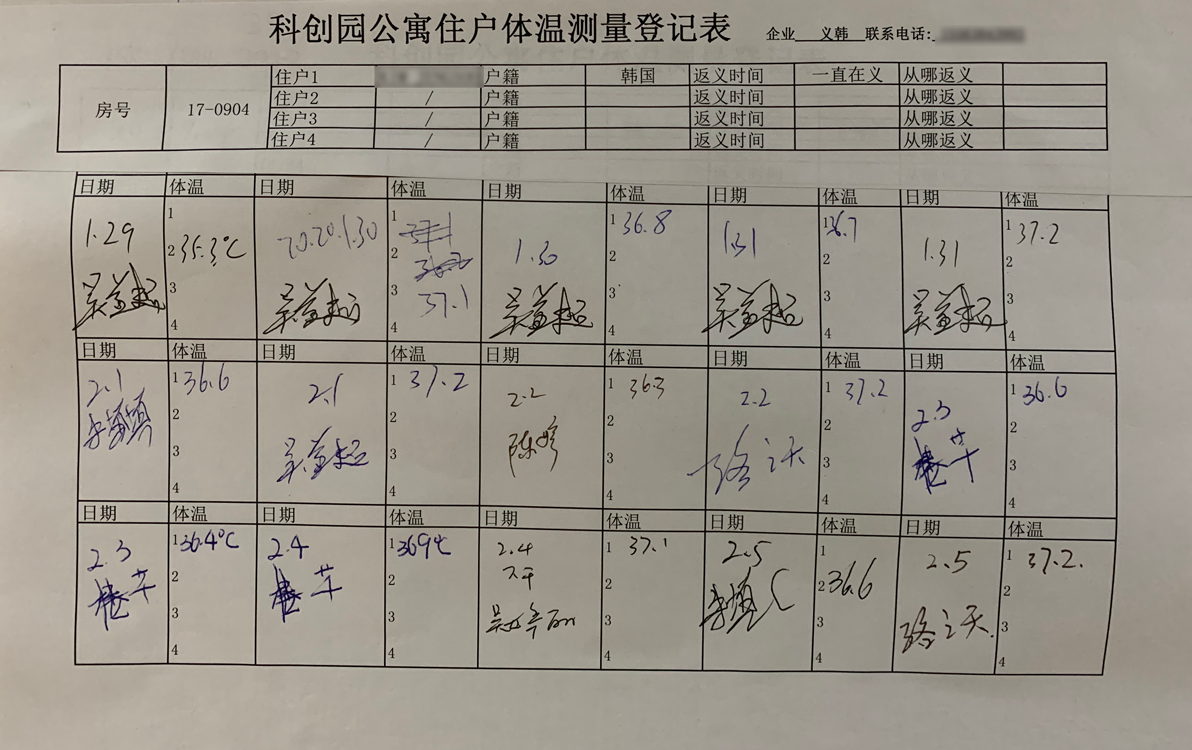 科创园公寓住户体温测量登记表 企业 义韩 联系电话:
房号 17-0904 住户1 户籍 韩国 返义时间 一直在义 从哪返义
住户2 / 户籍 返义时间 从哪返义
住户3 / 户籍 返义时间 从哪返义
住户4 / 户籍 返义时间 从哪返义
日期 体温 日期 体温 日期 体温 日期 体温 日期 体温
1.29 1 2 35.3℃ 3 4
2020.1.30 1 2 3 37.1 4
1.30 1 36.8 2 3 4
1.31 1 36.7 2 3 4
1.31 1 37.2 2 3 4
日期 体温 日期 体温 日期 体温 日期 体温 日期 体温
2.1 1 36.6 2 3 4
2.1 1 37.2 2 3 4
2.2 陈婷 1 36.3 2 3 4
2.2 骆之天 1 37.2 2 3 4
2.3 1 36.6 2 3 4
日期 体温 日期 体温 日期 体温 日期 体温 日期 体温
2.3 1 36.4℃ 2 3 4
2.4 1 36.9℃ 2 3 4
2.4 下午 1 37.1 2 3 4
2.5 1 2 36.6 3 4
2.5 骆之天 1 37.2. 2 3 4